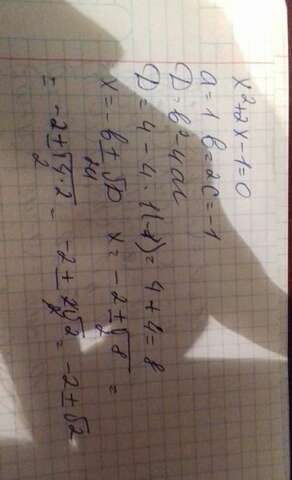 x²+2x-1=0
a=1 b=2 c=-1
D=b²-4ac
D=4-4·1(-1)=4+4=8
x=-b±√D/2a x=-2±√8/2=
=-2±√4·2/2=-2±2√2/2=-2±√2